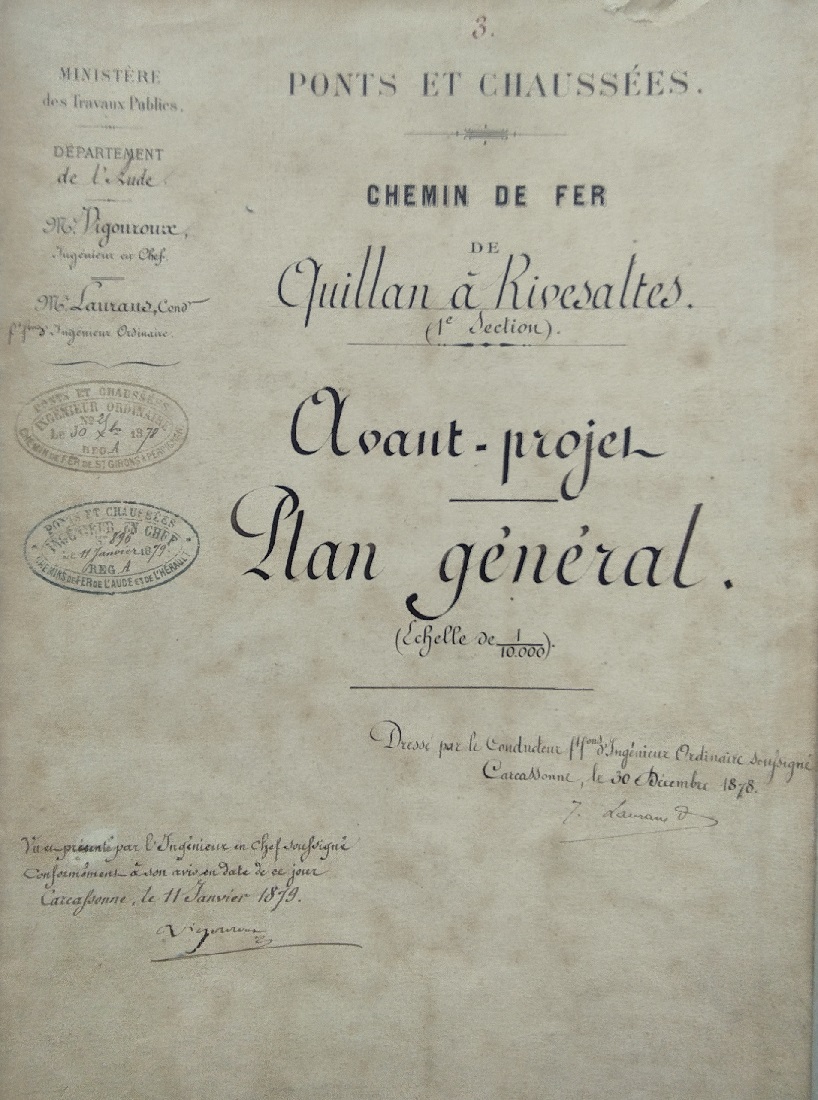 3.
MINISTÈRE
des Travaux Publics.
DÉPARTEMENT
de l'Aude
Mr. Vigouroux,
Ingénieur en Chef.
Mr. Laurans, Cond
f.fons d'Ingénieur Ordinaire.
PONTS ET CHAUSSÉES
INGÉNIEUR ORDINAIRE
No
Le 30 Xbre 1878
REG. A
CHEMIN DE FER DE ST GIRONS A PERPIGNAN
PONTS ET CHAUSSÉES
INGÉNIEUR EN CHEF
No 890
Le 11 Janvier 1879
REG A
CHEMINS DE FER DE L'AUDE ET DE L'HÉRAULT
PONTS ET CHAUSSÉES.
CHEMIN DE FER
DE
Quillan à Rivesaltes.
(1e Section).
Avant-projet
Plan général.
(Echelle de 1/10.000).
Dressé par le Conducteur f.fons d'Ingénieur Ordinaire soussigné
Carcassonne, le 30 Décembre 1878.
J. Laurans
Vu et présenté par l'Ingénieur en Chef soussigné
Conformément à son avis en date de ce jour
Carcassonne, le 11 Janvier 1879.
Vigouroux